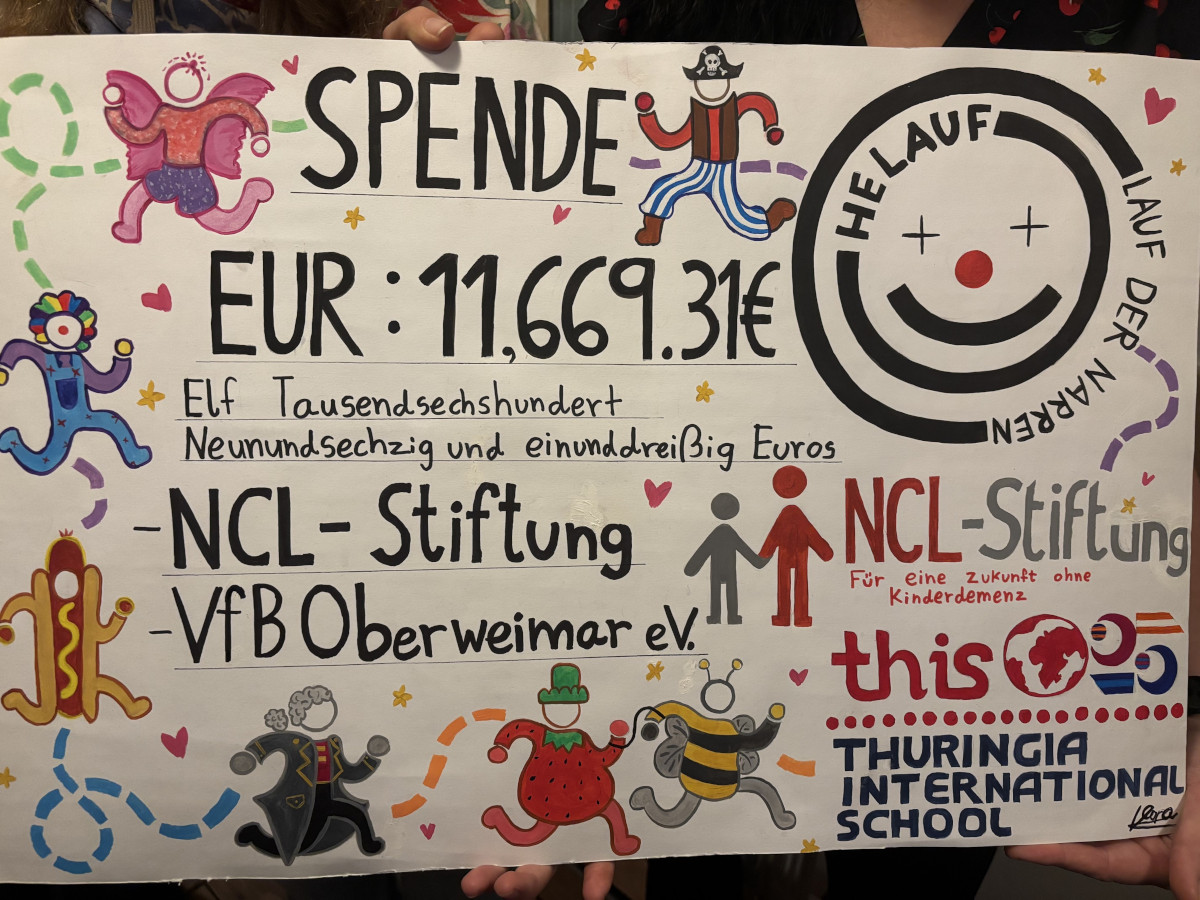 SPENDE
HELAUF
LAUF DER NARREN
EUR : 11,669.31€
Elf Tausendsechshundert
Neunundsechzig und einunddreißig Euros
-NCL-Stiftung
-VfB Oberweimar eV.
NCL-Stiftung
Für eine Zukunft ohne
Kinderdemenz
this
THURINGIA
INTERNATIONAL
SCHOOL